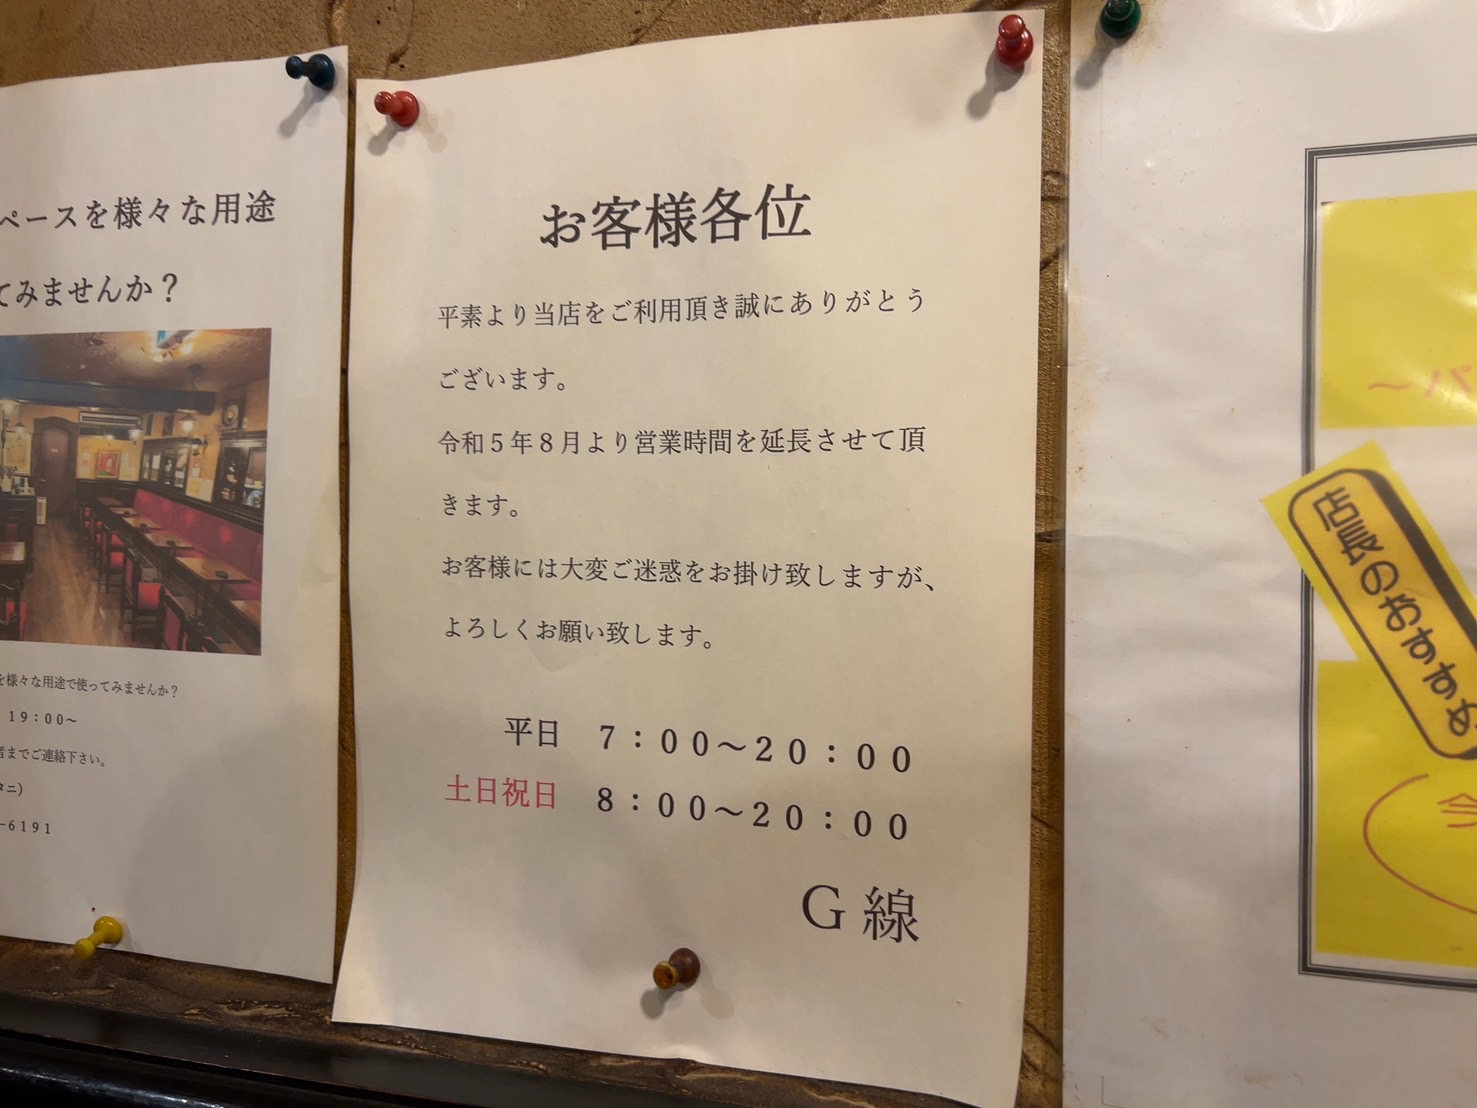 ペースを様々な用途
てみませんか？
を様々な用途で使ってみませんか？
19：00～
者までご連絡下さい。
タニ）
-6191
お客様各位
平素より当店をご利用頂き誠にありがとう
ございます。
令和５年８月より営業時間を延長させて頂
きます。
お客様には大変ご迷惑をお掛け致しますが、
よろしくお願い致します。
平日　７：００～２０：００
土日祝日　８：００～２０：００
Ｇ線
店長のおすすめ